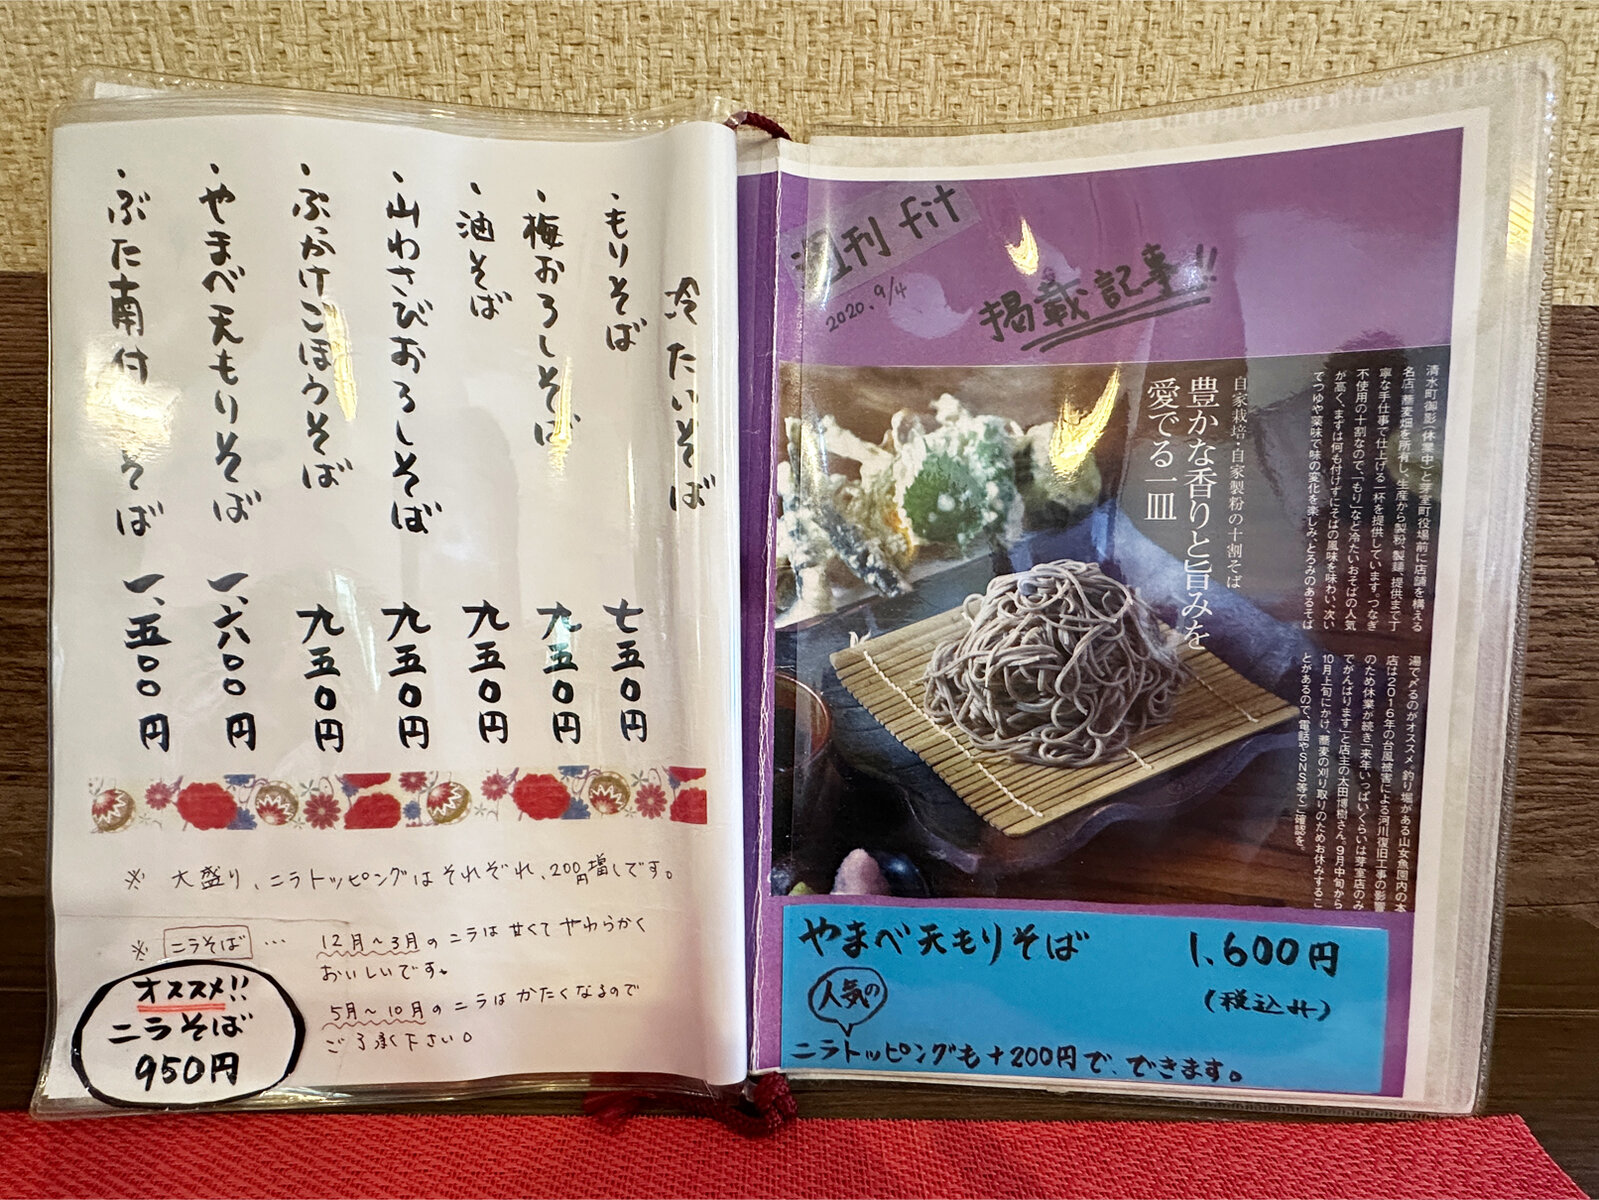 冷たいそば
・もりそば 七五〇円
・梅おろしそば 九五〇円
・油そば 九五〇円
・山わさびおろしそば 九五〇円
・ぶっかけごぼうそば 九五〇円
・やまべ天もりそば 一、六〇〇円
・ぶた南付そば 一、五〇〇円
※ 大盛り、ニラトッピングはそれぞれ、200円増しです。
※ ニラそば … 12月～3月のニラは甘くてやわらかく
おいしいです。
5月～10月のニラはかたくなるので
ご了承下さい。
オススメ!!
ニラそば
950円
週刊 fit
2020.9/4
掲載記事!!
自家栽培・自家製粉の十割そば
豊かな香りと旨みを
愛でる一皿
清水町御影(休業中)と芽室町役場前に店舗を構える
名店。蕎麦畑を所有し、生産から製粉、製麺、提供まで丁
寧な手仕事で仕上げる一杯を提供しています。つなぎ
不使用の十割なので、「もり」など冷たいおそばの人気
が高く、まずは何も付けずにそばの風味を味わい、次い
でつゆや薬味で味の変化を楽しみ、とろみのあるそば
湯で〆るのがオススメ。釣り堀がある山女魚園内の本
店は2016年の台風被害による河川復旧工事の影響
のため休業が続き「来年いっぱいくらいは芽室店のみ
でがんばります」と店主の太田博樹さん。9月中旬から
10月上旬にかけ、蕎麦の刈り取りのためお休みするこ
とがあるので、電話やSNS等でご確認を。
やまべ天もりそば 1,600円
(税込み)
人気の
ニラトッピングも+200円で、できます。